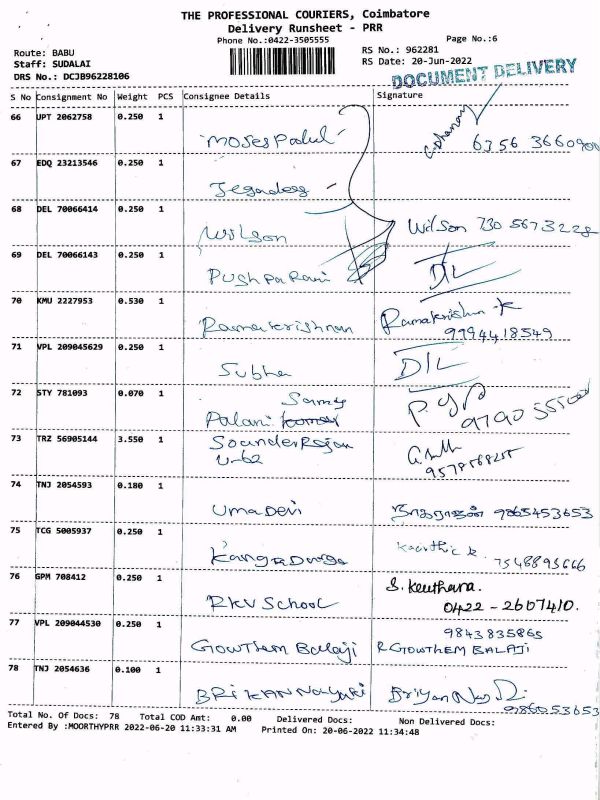 THE PROFESSIONAL COURIERS, Coimbatore
Delivery Runsheet - PRR
Phone No.:0422-3505555
Page No.:6
Route: BABU
RS No.: 962281
Staff: SUDALAI
RS Date: 20-Jun-2022
DRS No.: DCJB96228106
DOCUMENT DELIVERY
S No Consignment No Weight PCS Consignee Details Signature
66 UPT 2062758 0.250 1
Moses Paul
67 EDQ 23213546 0.250 1
68 DEL 70066414 0.250 1
Wilson Wilson 730 5673228
69 DEL 70066143 0.250 1
Pushpa Rani D/L
70 KMU 2227953 0.530 1
Ramakrishnan Ramakrishn K
9994418549
71 VPL 209045629 0.250 1
Subha D/L
72 STY 781093 0.070 1
Samy
Palani
73 TRZ 56905144 3.550 1
SounderRajan
U-62
74 TNJ 2054593 0.180 1
Uma Devi நாகராஜன் 9865453653
75 TCG 5005937 0.250 1
Kanga Durga Kaarthick 7548893666
76 GPM 708412 0.250 1
S. Keerthana.
RKV School 0422-2607410.
77 VPL 209044530 0.250 1
9843835865
Gowthem Balaji R GOWTHEM BALAJI
78 TNJ 2054636 0.100 1
Total No. Of Docs: 78 Total COD Amt: 0.00 Delivered Docs: Non Delivered Docs:
Entered By :MOORTHYPRR 2022-06-20 11:33:31 AM Printed On: 20-06-2022 11:34:48